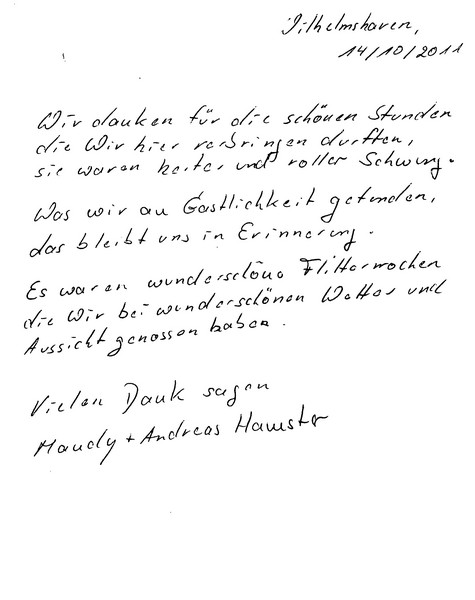 Wilhelmshaven,
14/10/2011
Wir danken für die schönen Stunden
die Wir hier verbringen durften,
sie waren heiter und voller Schwung.
Was wir an Gastlichkeit gefunden,
das bleibt uns in Erinnerung.
Es waren wunderschöne Flitterwochen
die Wir bei wunderschönen Wetter und
Aussicht genossen haben.
Vielen Dank sagen
Mandy + Andreas